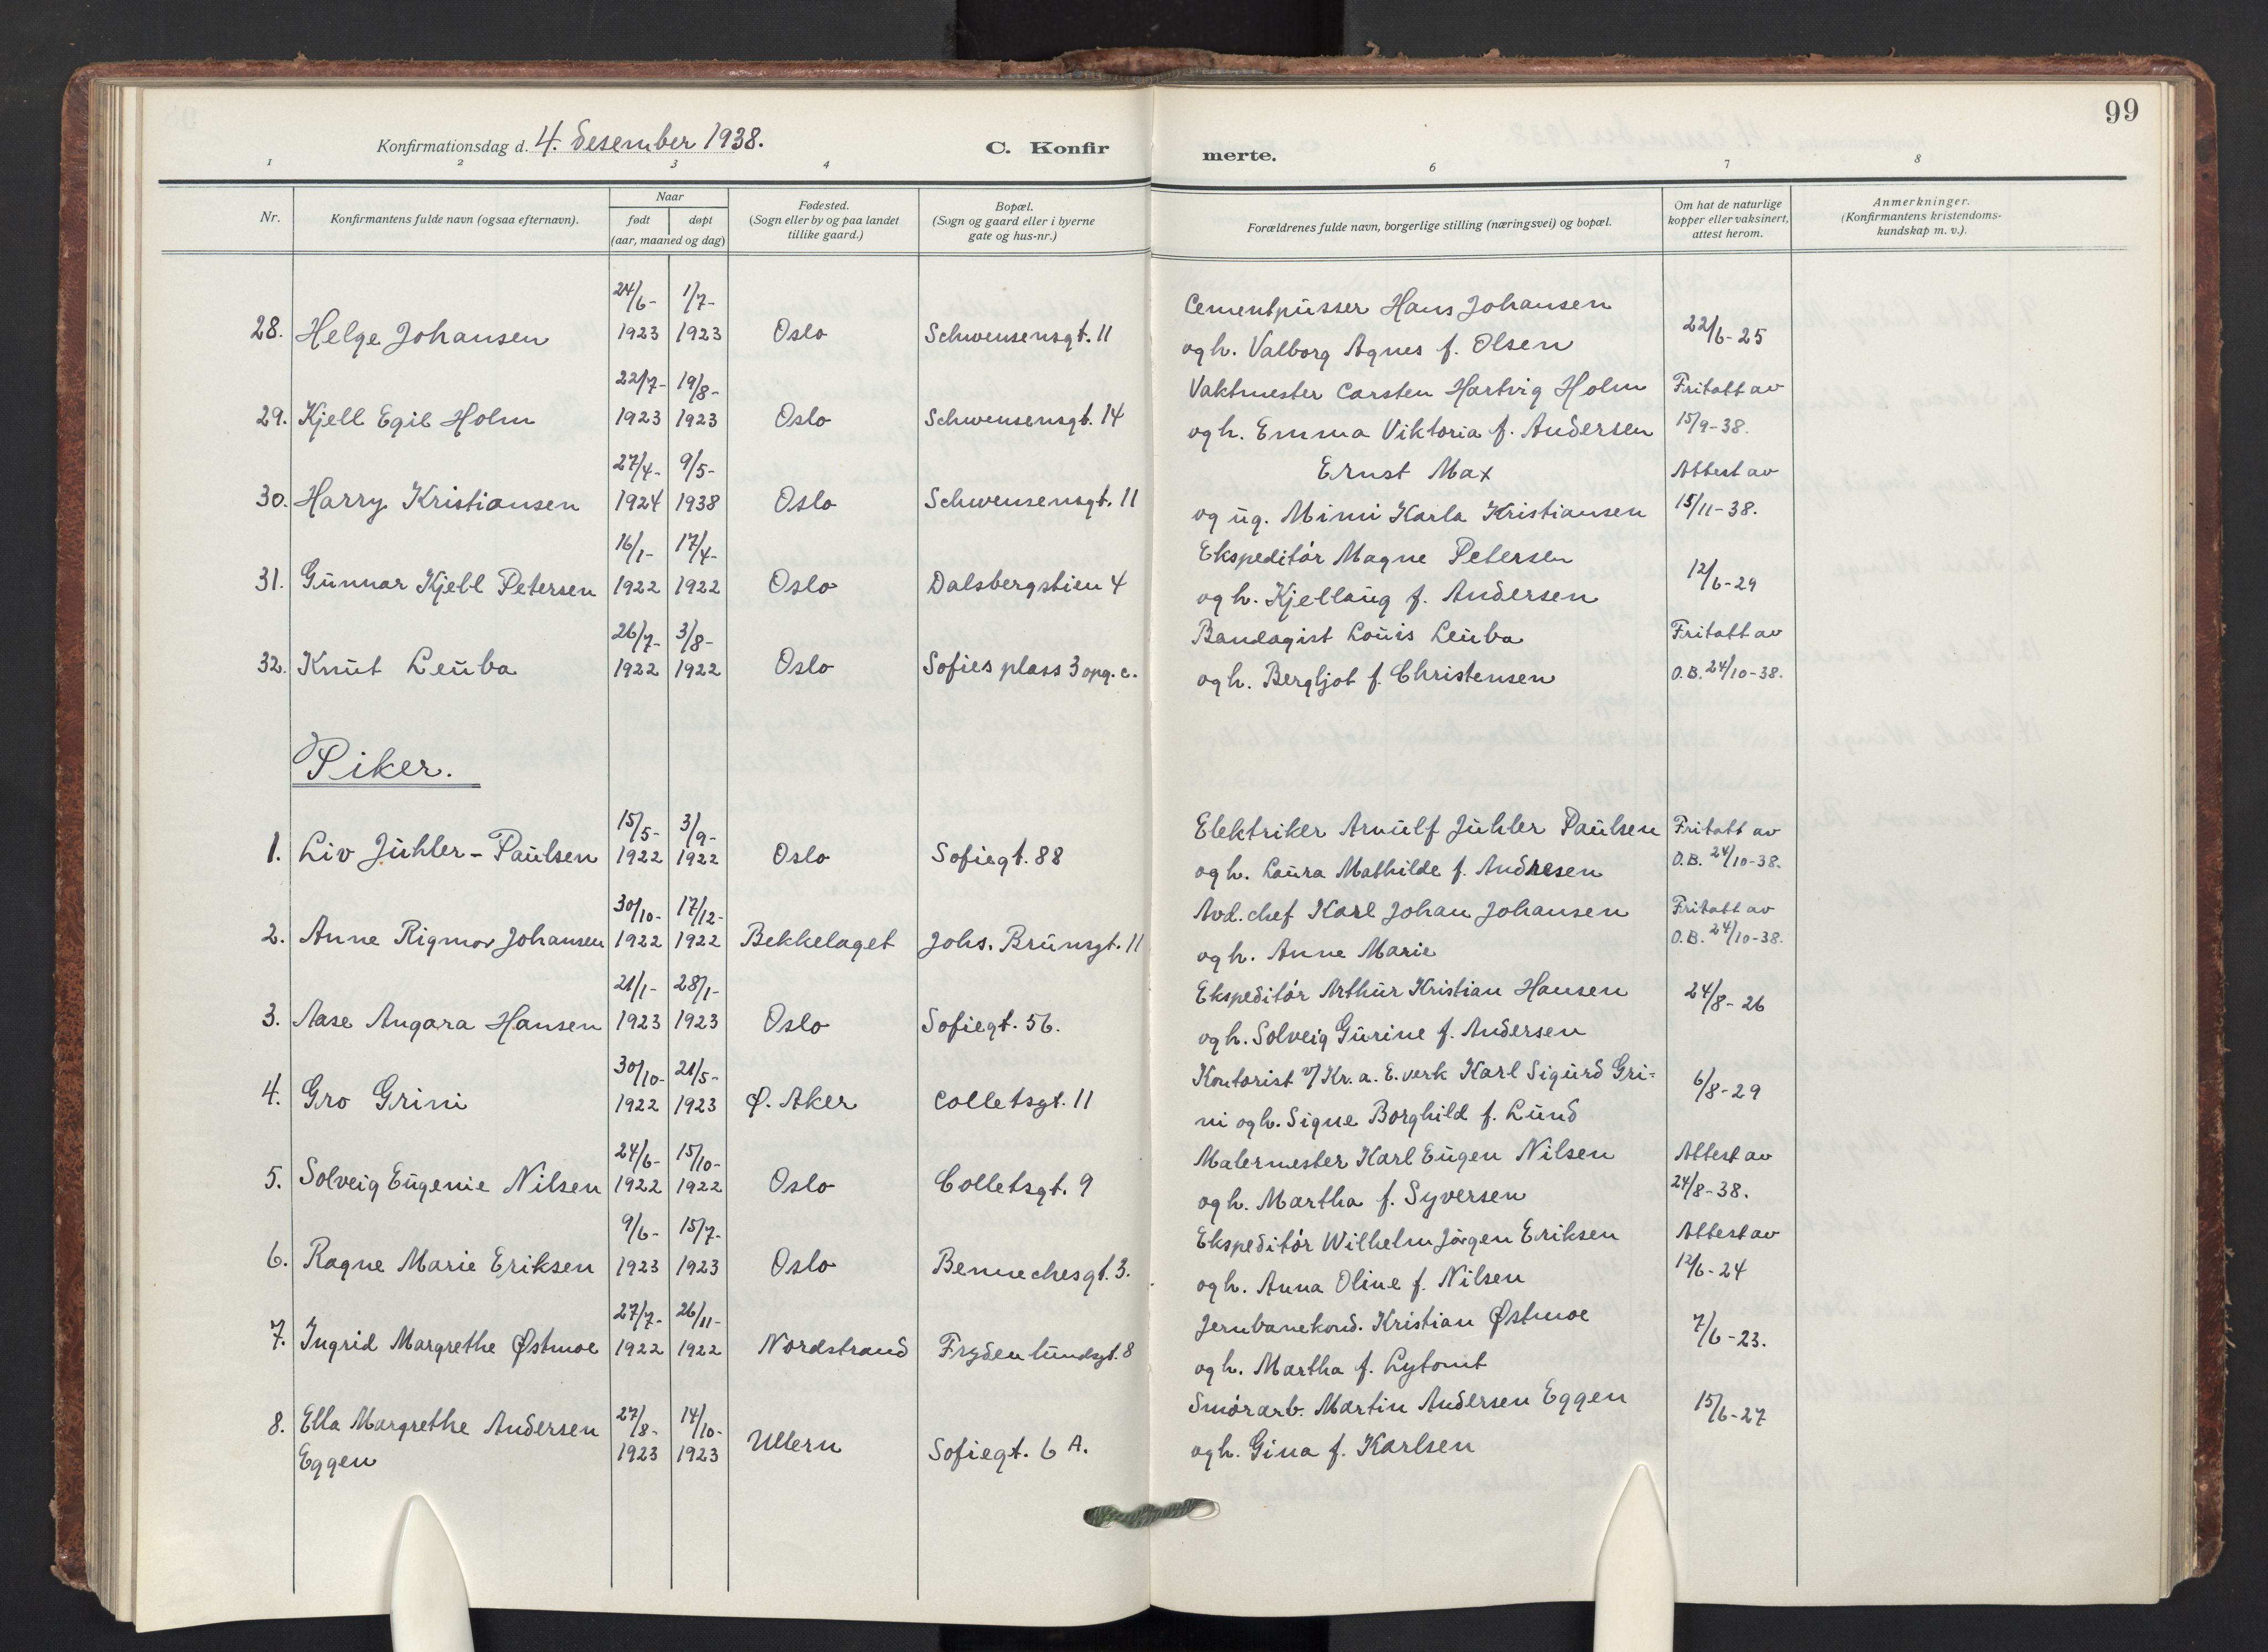 99
Konfirmationsdag d. 4. desember 1938.
C. Konfir
merte.
1 2 3 4 6 7 8
Nr.
Konfirmantens fulde navn (ogsaa efternavn).
Naar
født døpt
(aar, maaned og dag)
Fødested.
(Sogn eller by og paa landet
tillike gaard.)
Bopæl.
(Sogn og gaard eller i byerne
gate og hus-nr.)
Forældrenes fulde navn, borgerlige stilling (næringsvei) og bopæl.
Om hat de naturlige
kopper eller vaksinert,
attest herom.
Anmerkninger.
(Konfirmantens kristendoms-
kundskap m. v.).
24/6- 1/7- Cementpusser Hans Johansen
28. Helge Johansen 1923 1923 Oslo Schwensensgt. 11 og h. Valborg Agnes f. Olsen 22/6-25
22/7- 19/8- Vaktmester Carsten Hartvig Holm Fritatt av
29. Kjell Egil Holm 1923 1923 Oslo Schwensensgt. 14 og h. Emma Viktoria f. Andersen 15/9-38.
27/4- 9/5- Ernst Max Attest av
30. Harry Kristiansen 1924 1938 Oslo Schwensensgt. 11 og ug. Mimi Karla Kristiansen 15/11-38.
16/1- 17/4- Ekspeditør Magne Petersen
31. Gunnar Kjell Petersen 1922 1922 Oslo Dalsbergstien 4 og h. Kjellaug f. Andersen 12/6-29
26/7- 3/8- Bandagist Louis Leuba Fritatt av
32. Knut Leuba 1922 1922 Oslo Sofies plass 3 opg. c. og h. Bergljot f. Christensen O.B. 24/10-38.
Piker.
15/5- 3/9- Elektriker Arnulf Juhler Paulsen Fritatt av
1. Liv Juhler-Paulsen 1922 1922 Oslo Sofiegt. 88 og h. Laura Mathilde f. Andresen O.B. 24/10-38.
30/10- 17/12- Avd. chef Karl Johan Johansen Fritatt av
2. Anne Rigmor Johansen 1922 1922 Bekkelaget Johs. Brunsgt. 11 og h. Anne Marie O.B. 24/10-38.
21/1- 28/1- Ekspeditør Arthur Kristian Hansen
3. Aase Angara Hansen 1923 1923 Oslo Sofiegt. 56. og h. Solveig Gurine f. Andersen 24/8-26
30/10- 21/5- Kontorist v/ Kr.a. E. verk Karl Sigurd Gri=
4. Gro Grini 1922 1923 Ø. Aker Colletsgt. 11 ni og h. Signe Borghild f. Lund 6/8-29
24/6- 15/10- Malermester Karl Eugen Nilsen Attest av
5. Solveig Eugenie Nilsen 1922 1922 Oslo Colletsgt. 9 og h. Martha f. Syversen 24/8-38.
9/6- 15/7- Ekspeditør Wilhelm Jørgen Eriksen Attest av
6. Ragne Marie Eriksen 1923 1923 Oslo Bennechesgt. 3. og h. Anna Oline f. Nilsen 12/6-24
27/7- 26/11- Jernbanekond. Kristian Østmoe
7. Ingrid Margrethe Østmoe 1922 1922 Nordstrand Frydenlundsgt. 8 og h. Martha f. Lytomt 7/6-23.
8. Ella Margrethe Andersen 27/8- 14/10- Smørarb. Martin Andersen Eggen 15/6-27
Eggen 1923 1923 Ullern Sofiegt. 6 A. og h. Gina f. Karlsen